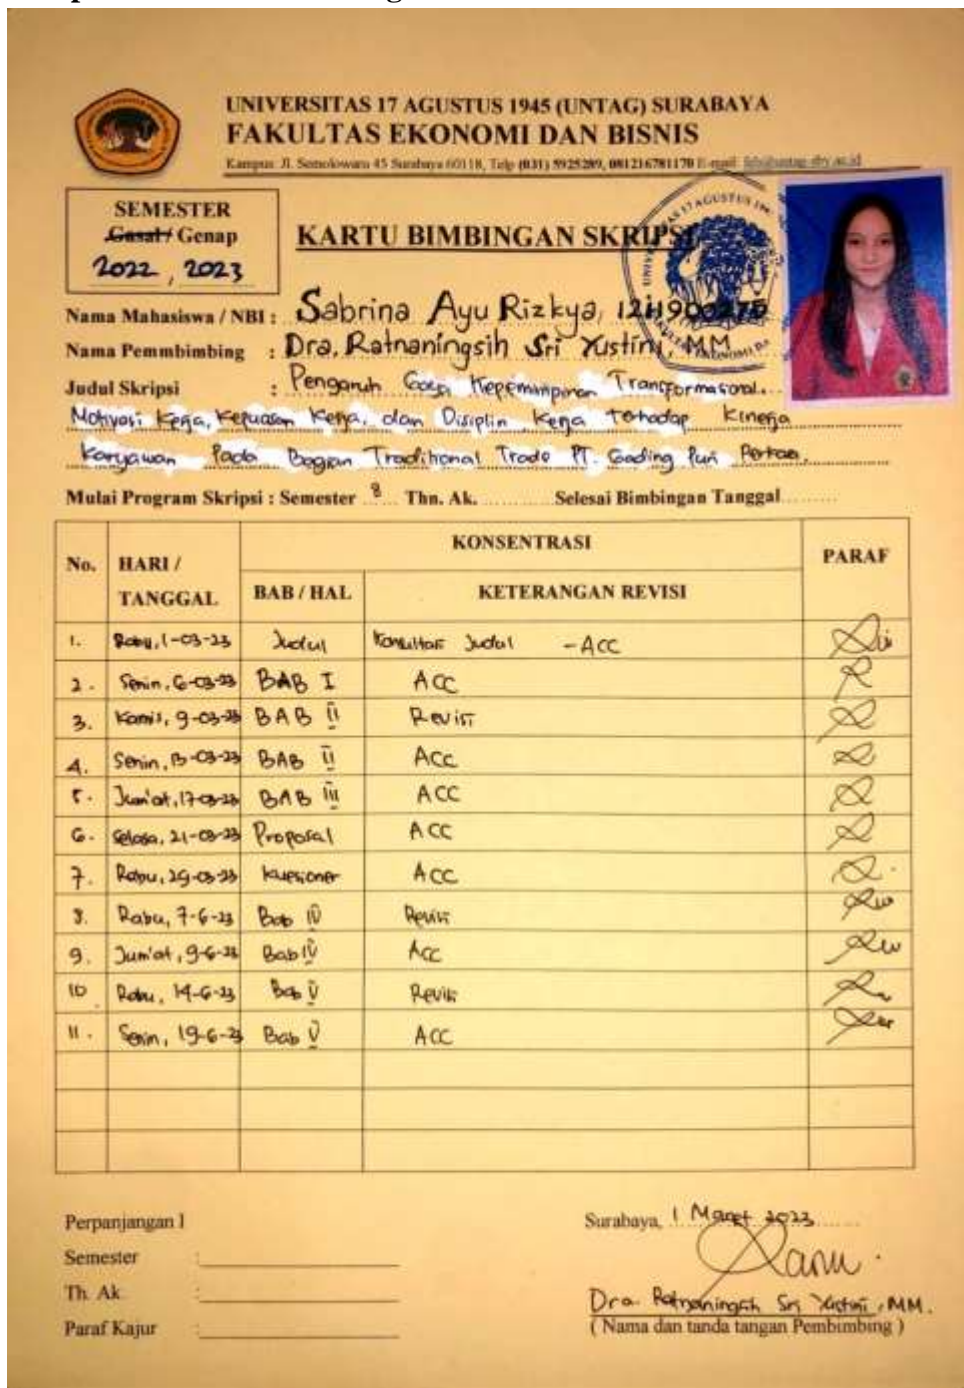 UNIVERSITAS 17 AGUSTUS 1945 (UNTAG) SURABAYA
FAKULTAS EKONOMI DAN BISNIS
Kampus: Jl. Semolowaru 45 Surabaya 60118, Telp (031) 5925289, 081216781170 E-mail: feb@untag-sby.ac.id
SEMESTER
Gasal / Genap
2022 , 2023
KARTU BIMBINGAN SKRIPSI
Nama Mahasiswa / NBI : Sabrina Ayu Rizkya, 1211900275
Nama Pemmbimbing : Dra. Ratnaningsih Sri Yustini, MM
Judul Skripsi : Pengaruh Gaya Kepemimpinan Transformasional.
Motivasi Kerja, Kepuasan Kerja, dan Disiplin Kerja Terhadap Kinerja
Karyawan Pada Bagian Traditional Trade PT. Gading Puri Perkasa.
Mulai Program Skripsi : Semester 8 Thn. Ak. Selesai Bimbingan Tanggal
No. HARI / TANGGAL KONSENTRASI PARAF
BAB / HAL KETERANGAN REVISI
1. Rabu, 1-03-23 Judul Konsultasi Judul - ACC
2. Senin, 6-03-23 BAB I ACC
3. Kamis, 9-03-23 BAB II Revisi
4. Senin, 13-03-23 BAB II ACC
5. Jum'at, 17-03-23 BAB III ACC
6. Selasa, 21-03-23 Proposal ACC
7. Rabu, 29-03-23 kuesioner ACC
8. Rabu, 7-6-23 Bab IV Revisi
9. Jum'at, 9-6-23 Bab IV Acc
10 Rabu, 14-6-23 Bab V Revisi
11. Senin, 19-6-23 Bab V ACC
Perpanjangan I
Surabaya, 1 Maret 2023
Semester :
Th. Ak :
Dra. Ratnaningsih Sri Yustini, MM.
Paraf Kajur :
( Nama dan tanda tangan Pembimbing )